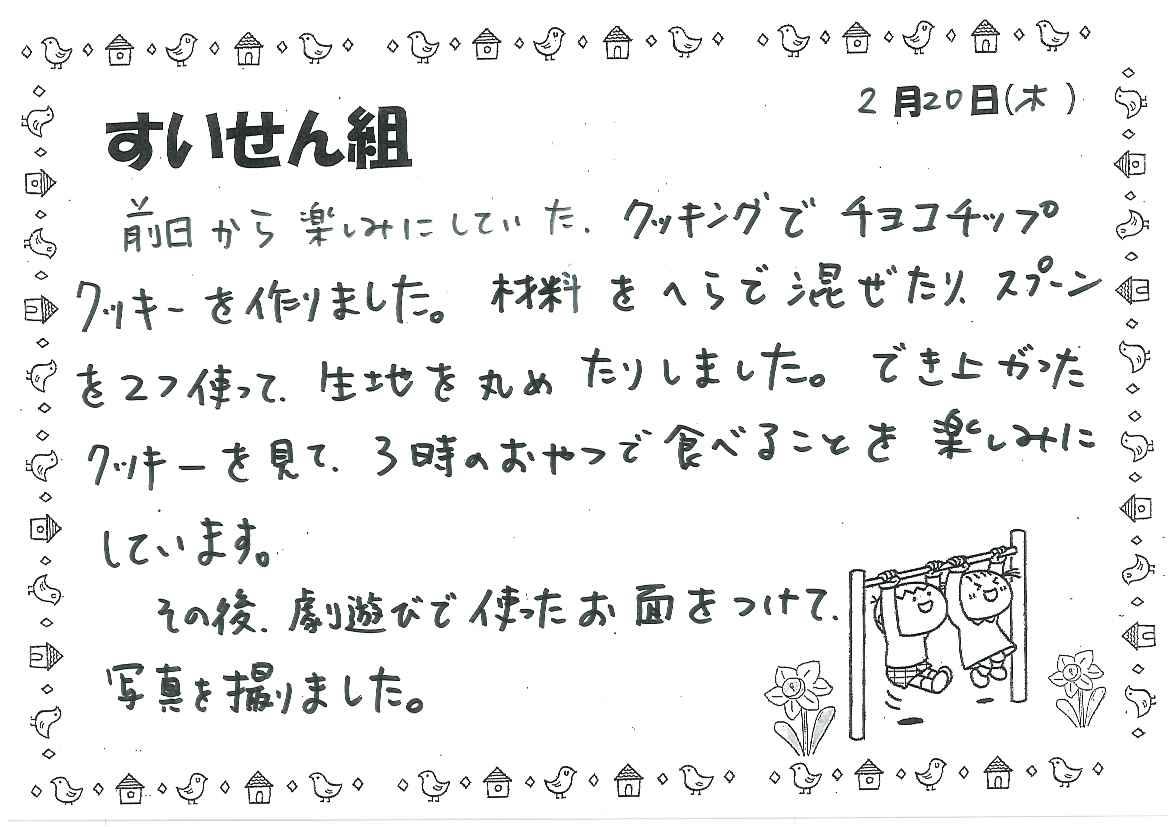 2月20日(木)
すいせん組
前日から楽しみにしていた、クッキングでチョコチップ
クッキーを作りました。材料をへらで混ぜたり、スプーン
を2つ使って、生地を丸めたりしました。でき上がった
クッキーを見て、3時のおやつで食べることを楽しみに
しています。
その後、劇遊びで使ったお面をつけて、
写真を撮りました。